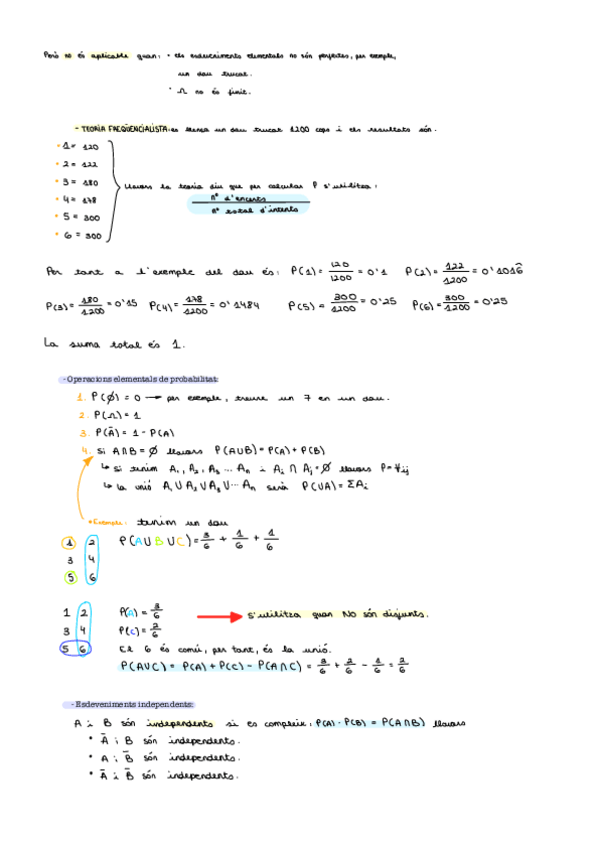 Però no és aplicable quan: • els esdeveniments elementals no són perfectes, per exemple,
un dau trucat.
• Ω no és finit.
- TEORIA FREQÜENCIALISTA: es llença un dau trucat 1200 cops i els resultats són.
• 1 = 120
• 2 = 122
• 3 = 180
• 4 = 178
• 5 = 300
• 6 = 300
Llavors la teoria diu que per calcular P s'utilitza:
nº d'encerts
nº total d'intents
Per tant a l'exemple del dau és: P(1) = 120/1200 = 0'1 P(2) = 122/1200 = 0'1016
P(3) = 180/1200 = 0'15 P(4) = 178/1200 = 0'1484 P(5) = 300/1200 = 0'25 P(6) = 300/1200 = 0'25
La suma total és 1.
- Operacions elementals de probabilitat:
1. P(∅) = 0 → per exemple, treure un 7 en un dau.
2. P(Ω) = 1
3. P(Ā) = 1 - P(A)
4. Si A∩B = ∅ llavors P(A∪B) = P(A) + P(B)
↳ Si tenim A₁, A₂, A₃ ... Aₙ i Aᵢ ∩ Aⱼ = ∅ llavors P = ∀ij
↳ La unió A₁ ∪ A₂ ∪ A₃ ∪ ... Aₙ serà P(∪A) = ΣAᵢ
• Exemple: tenim un dau
1 2
3 4
5 6
P(A∪B∪C) = 3/6 + 1/6 + 1/6
1 2
3 4
5 6
P(A) = 3/6
P(C) = 2/6
→ S'utilitza quan NO són disjunts.
El 6 és comú, per tant, és la unió.
P(A∪C) = P(A) + P(C) - P(A∩C) = 3/6 + 2/6 - 1/6 = 2/6
- Esdeveniments independents:
A i B són independents si es compleix: P(A) · P(B) = P(A∩B) llavors
• Ā i B són independents.
• A i B̄ són independents.
• Ā i B̄ són independents.